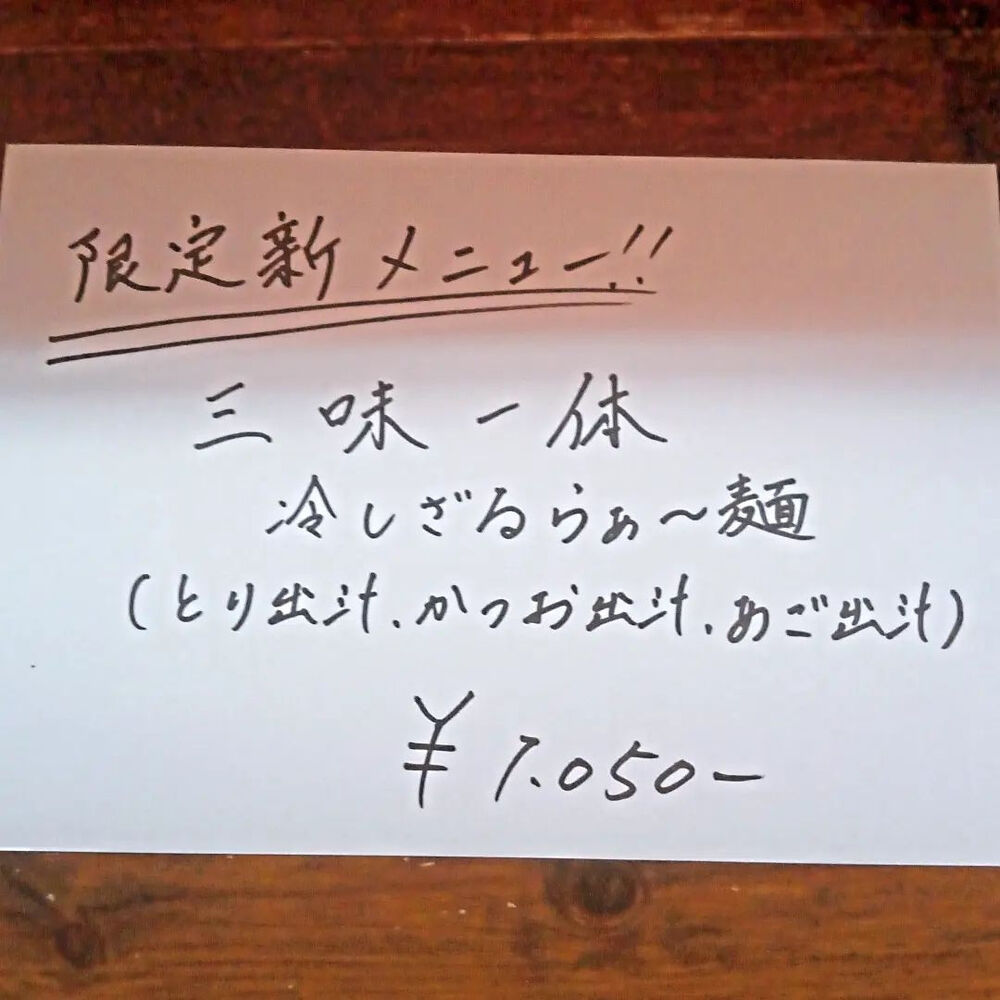 限定新メニュー!!
三味一体
冷しざるらぁ〜麺
(とり出汁、かつお出汁、あご出汁)
¥1.050ー